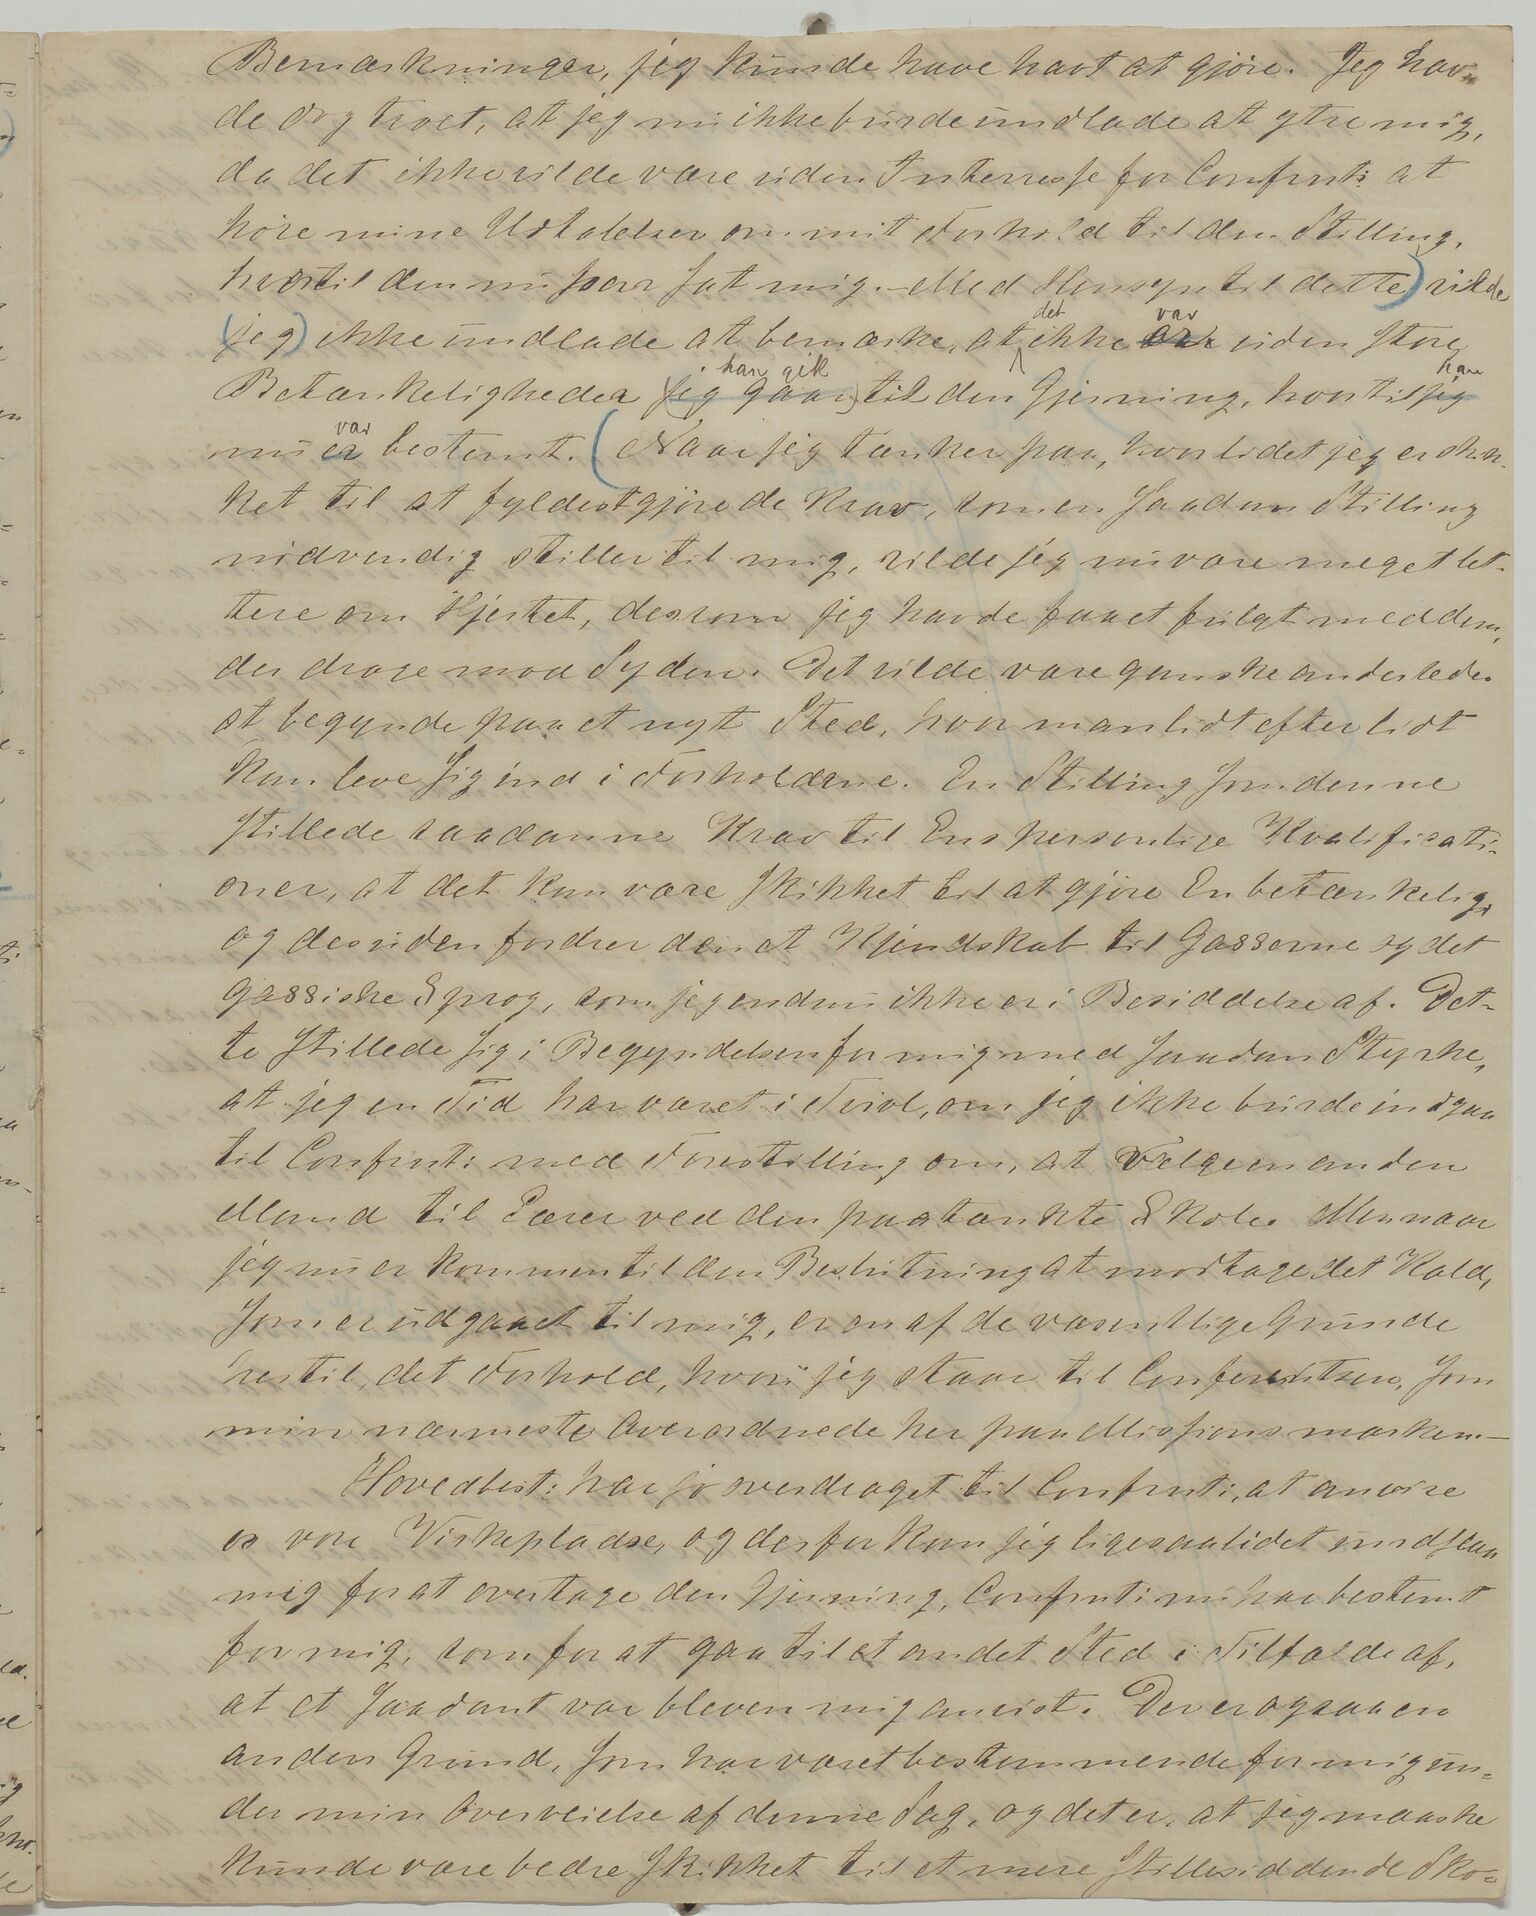 Bemærkninger, jeg kunde have havt at gjöre. Jeg hav-
de dog troet, at jeg nu ikke burde undlade at ytre mig,
da det ikke vilde være uden Interresse for Confrnts: at
höre mine Udtalelser om mit Forhold til den Stilling,
hvortil den nu har sat mig. – Med Hensyn til dette) vilde
(jeg) ikke undlade at bemærke, at det ikke er var uden store
Betænkeligheder (jeg gaar) han gik til den Gjerning, hvortil jeg han
nu er var bestemt. (Naar jeg tænker paa, hvor lidet jeg er skik-
ket til at fyldestgjöre de Krav, som en saadan Stilling
nödvendig stiller til mig, vilde jeg nu være meget let-
tere om Hjertet, dersom jeg havde faaet fulgt med dem,
der drage mod Syden. Det vilde være ganske anderledes
at begynde paa et nyt Sted, hvor man lidt efter lidt
kan leve sig ind i Forholdene. En Stilling som denne
stillede saadanne Krav til Ens personlige Kvalificati-
oner, at det kan være skikket til at gjöre En betænkelig,
og desuden fordrer den et Kjendskab til Gasserne og det
gassiske Sprog, som jeg endnu ikke er i Besiddelse af. Det-
te stillede sig i Begyndelsen for mig med saadan Styrke,
at jeg en Tid har været i Tvivl, om jeg ikke burde indgaa
til Confrnts: med Forestilling om, at vælge en anden
Mand til Lærer ved den paatænkte Skole. Men naar
jeg nu er kommen til den Beslutning at modtage det Kald,
som er udgaaet til mig, er en af de væsentlige Grunde
hertil, det Forhold, hvori jeg staar til Conferentsen, som
min nærmeste Overordnede her paa Missionsmarken. –
Hovedbest: har jo overdraget til Confrnts:, at anvise
os vore Virkepladse, og derfor kan jeg ligesaalidet undslaa
mig for at overtage den Gjerning, Confrnts: nu har bestemt
for mig, som for at gaa til et andet Sted i Tilfælde af,
at et saadant var bleven mig anvist. Der er ogsaa en
anden Grund, som har været bestemmende for mig un-
der min Overveielse af denne Sag, og det er, at jeg maaske
kunde være bedre skikket til et mere stillesiddende Sko-